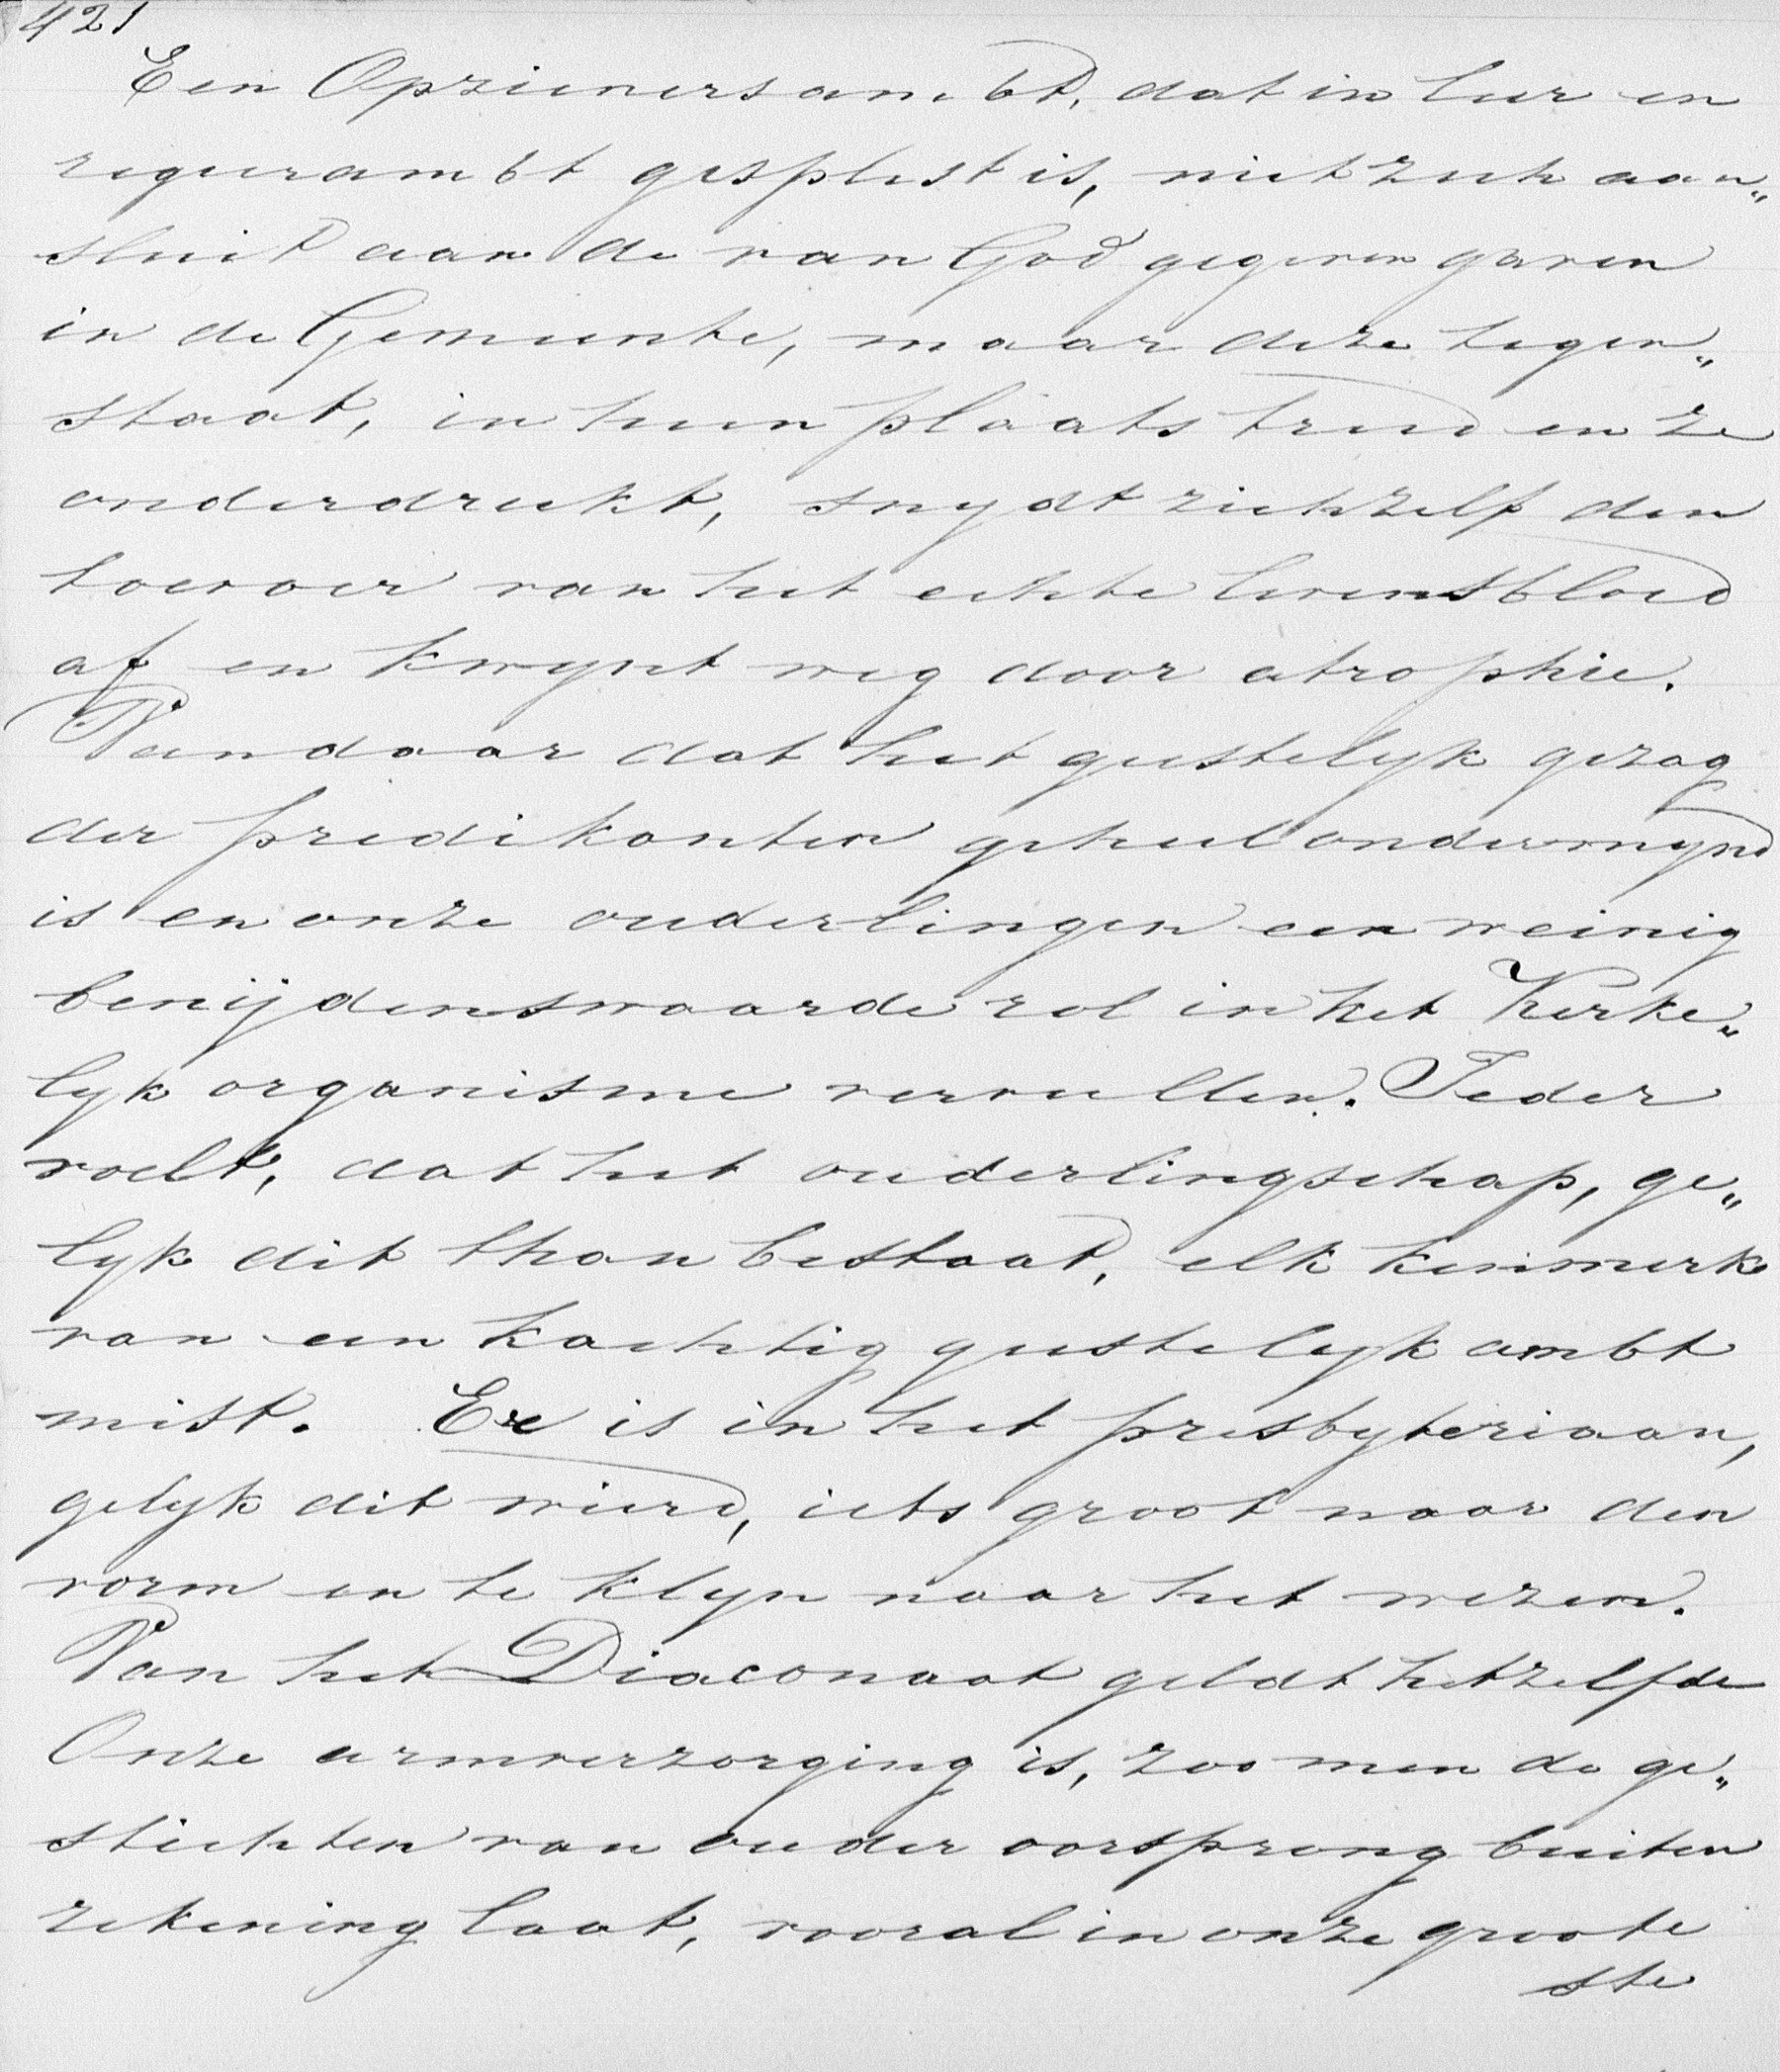 421
Een Opzienersambt, dat in leer en
regeerambt gesplest is, niet zich aan„
sluit aan de van God gegeven gaven
in de Gemeente, maar deze tegen„
staat, in hun plaats treed en ze
onderdrukt, snydt zichzelf den
toevoer van het echte levensbloed
af en kwynt weg door atrophie.
Vandaar dat het geestelyk gezag
der predikanten geheel ondermynd
is en onze ouderlingen een weinig
benijdenswaarde rol in het Kerke„
lyk organisme vervullen. Ieder
voelt, dat het ouderlingschap, ge„
lyk dit than bestaat, elk kenmerk
van een kachtig geestelyk ambt
mist. Er is in het presbyteriaan,
gelyk dit wierd, iets groot naar den
vorm en te klyn naar het wezen.
Van het Diaconaat geldt hetzelfde
Onze armverzorging is, zoo men de ge„
stichten van ouder oorsprong buiten
rekening laat, vooral in onze groote
ste